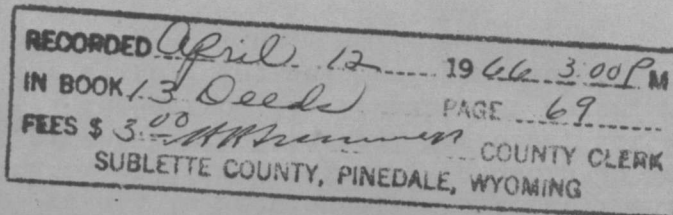 RECORDED April 12 1966 3:00 P M
IN BOOK 13 Deeds PAGE 69
FEES $ 3.00 COUNTY CLERK
SUBLETTE COUNTY, PINEDALE, WYOMING